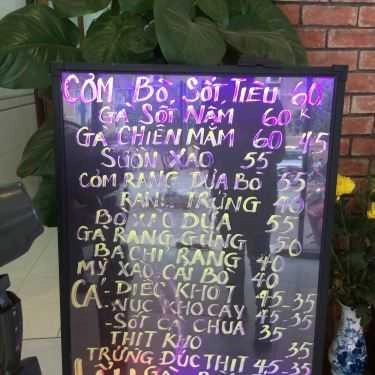 CƠM BÒ SỐT TIÊU 60
GÀ SỐT NẤM 60K
GÀ CHIÊN MẮM 60-45
SƯỜN XÀO 55
CƠM RANG DƯA BÒ 55
RANG TRỨNG 40
BÒ XÀO DỨA 55
GÀ RANG GỪNG 50
BA CHỈ RANG 40
MỲ XÀO CẢI BÒ 40
CÁ: DIẾC KHO T 45-35
- NỤC KHO CAY 45-35
- SỐT CÀ CHUA 35
THỊT KHO 35
TRỨNG ĐÚC THỊT 45-35
LẨU GÀ